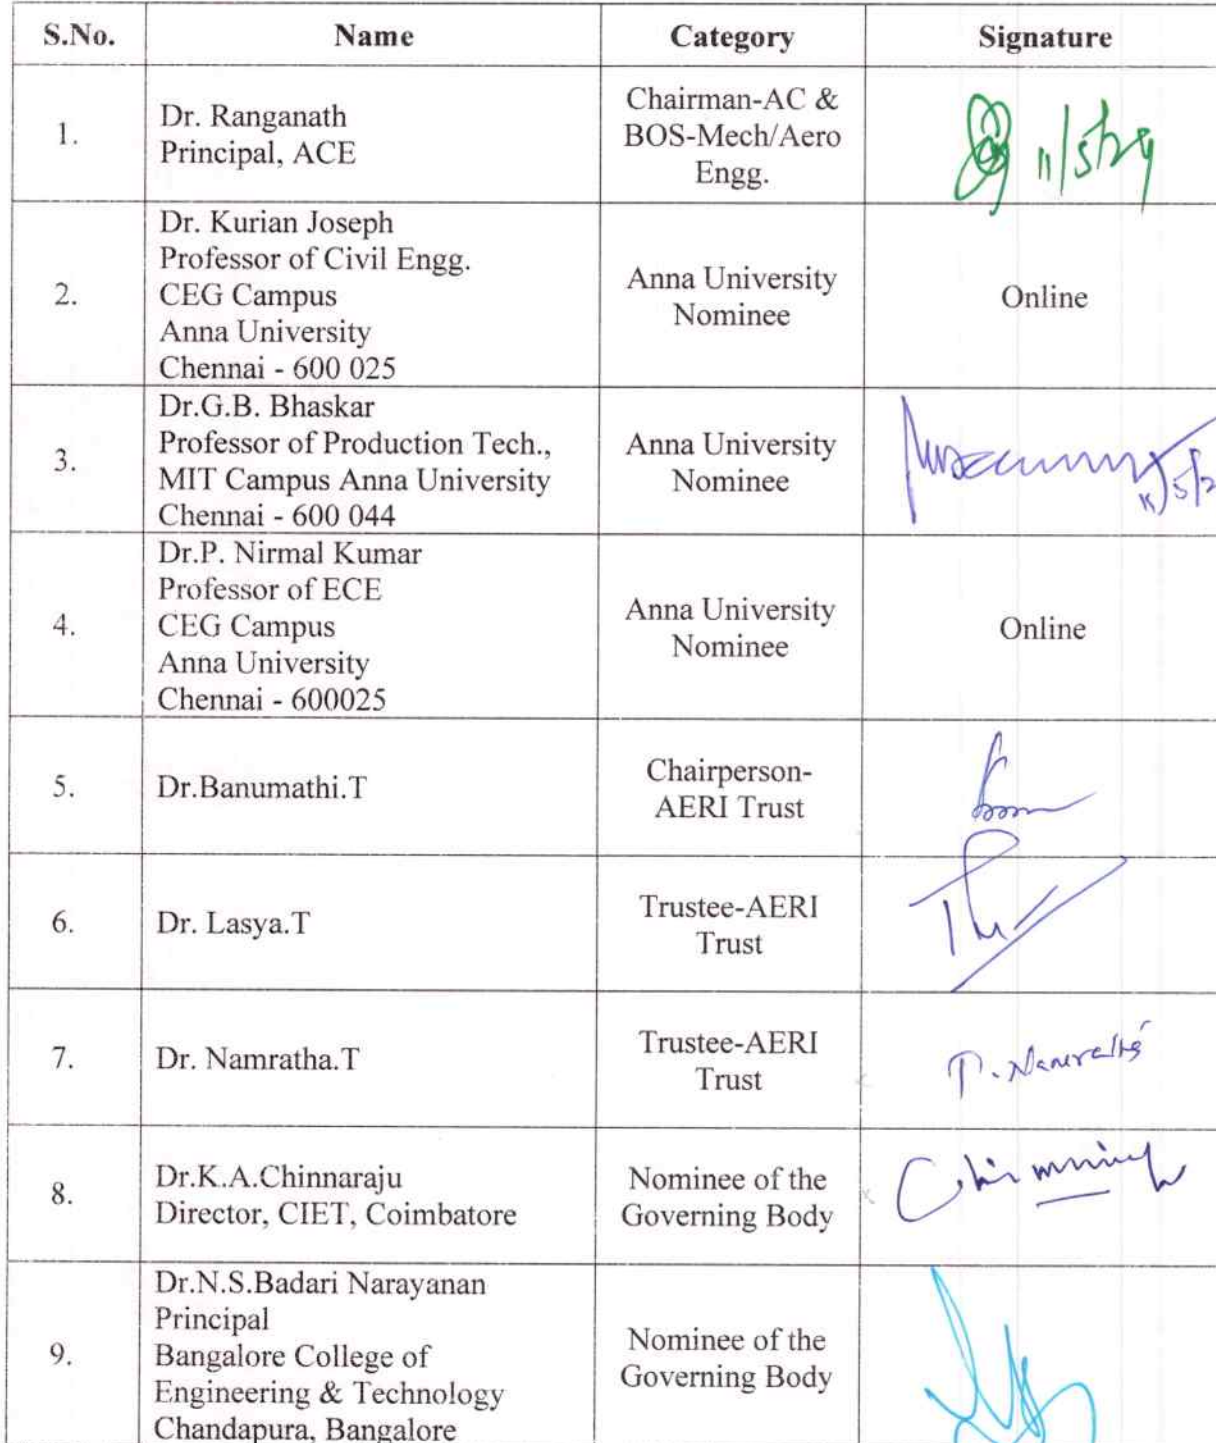 S.No. Name Category Signature
1. Dr. Ranganath
Principal, ACE
Chairman-AC &
BOS-Mech/Aero
Engg.
11/5/24
2. Dr. Kurian Joseph
Professor of Civil Engg.
CEG Campus
Anna University
Chennai - 600 025
Anna University
Nominee
Online
3. Dr.G.B. Bhaskar
Professor of Production Tech.,
MIT Campus Anna University
Chennai - 600 044
Anna University
Nominee
11/5/2
4. Dr.P. Nirmal Kumar
Professor of ECE
CEG Campus
Anna University
Chennai - 600025
Anna University
Nominee
Online
5. Dr.Banumathi.T
Chairperson-
AERI Trust
6. Dr. Lasya.T
Trustee-AERI
Trust
7. Dr. Namratha.T
Trustee-AERI
Trust
8. Dr.K.A.Chinnaraju
Director, CIET, Coimbatore
Nominee of the
Governing Body
9. Dr.N.S.Badari Narayanan
Principal
Bangalore College of
Engineering & Technology
Chandapura, Bangalore
Nominee of the
Governing Body